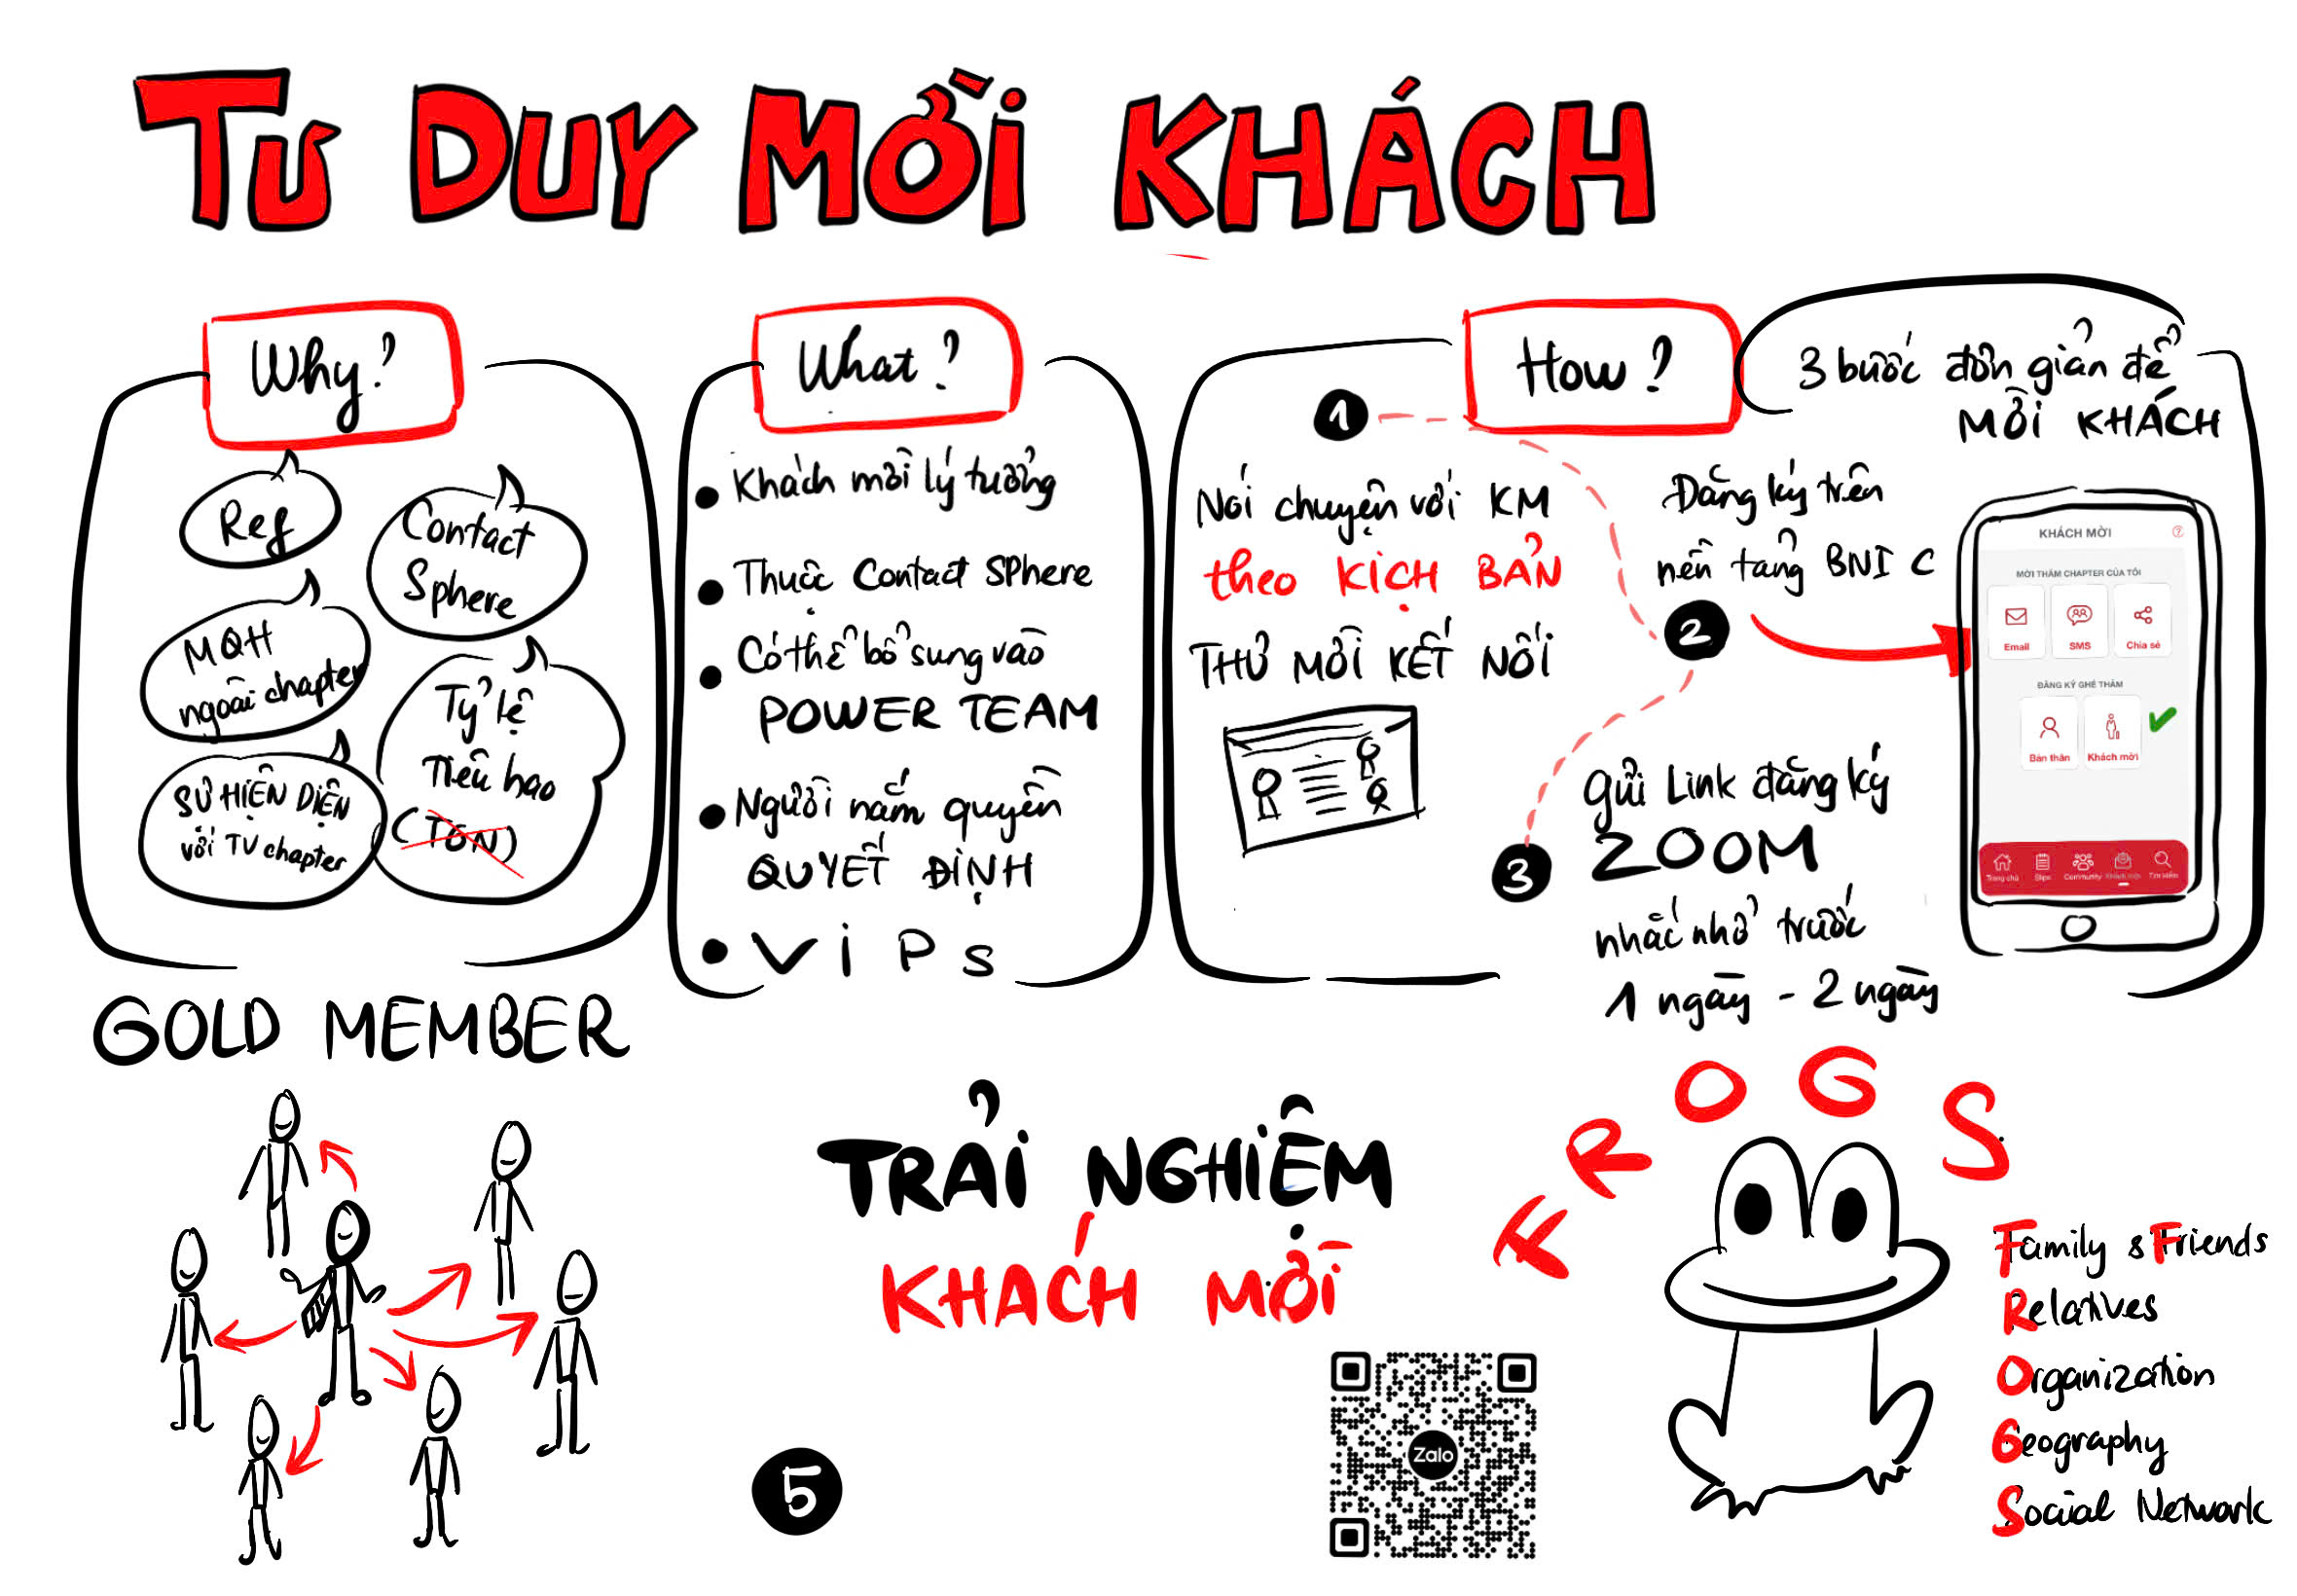 TƯ DUY MỜI KHÁCH
Why?
Ref
Contact
Sphere
MQH
ngoài chapter
Tỷ lệ
Tiêu hao
(TON)
SỰ HIỆN DIỆN
với TV chapter
What?
Khách mời lý tưởng
Thuộc Contact SPhere
Có thể bổ sung vào
POWER TEAM
Người nắm quyền
QUYẾT ĐỊNH
ViPs
How?
3 bước đơn giản để
MỜI KHÁCH
1
Nói chuyện với KM
theo KỊCH BẢN
THƯ MỜI KẾT NỐI
Đăng ký trên
nền tảng BNI C
2
KHÁCH MỜI
MỜI THĂM CHAPTER CỦA TÔI
Email
SMS
Chia sẻ
ĐĂNG KÝ GHÉ THĂM
Bản thân
Khách mời
Trang chủ
Slips
Community
Khách mời
Tìm kiếm
3
Gửi Link đăng ký
ZOOM
nhắc nhở trước
1 ngày - 2 ngày
GOLD MEMBER
TRẢI NGHIỆM
KHÁCH MỜI
5
Zalo
FROGS
Family & Friends
Relatives
Organization
Geography
Social Network